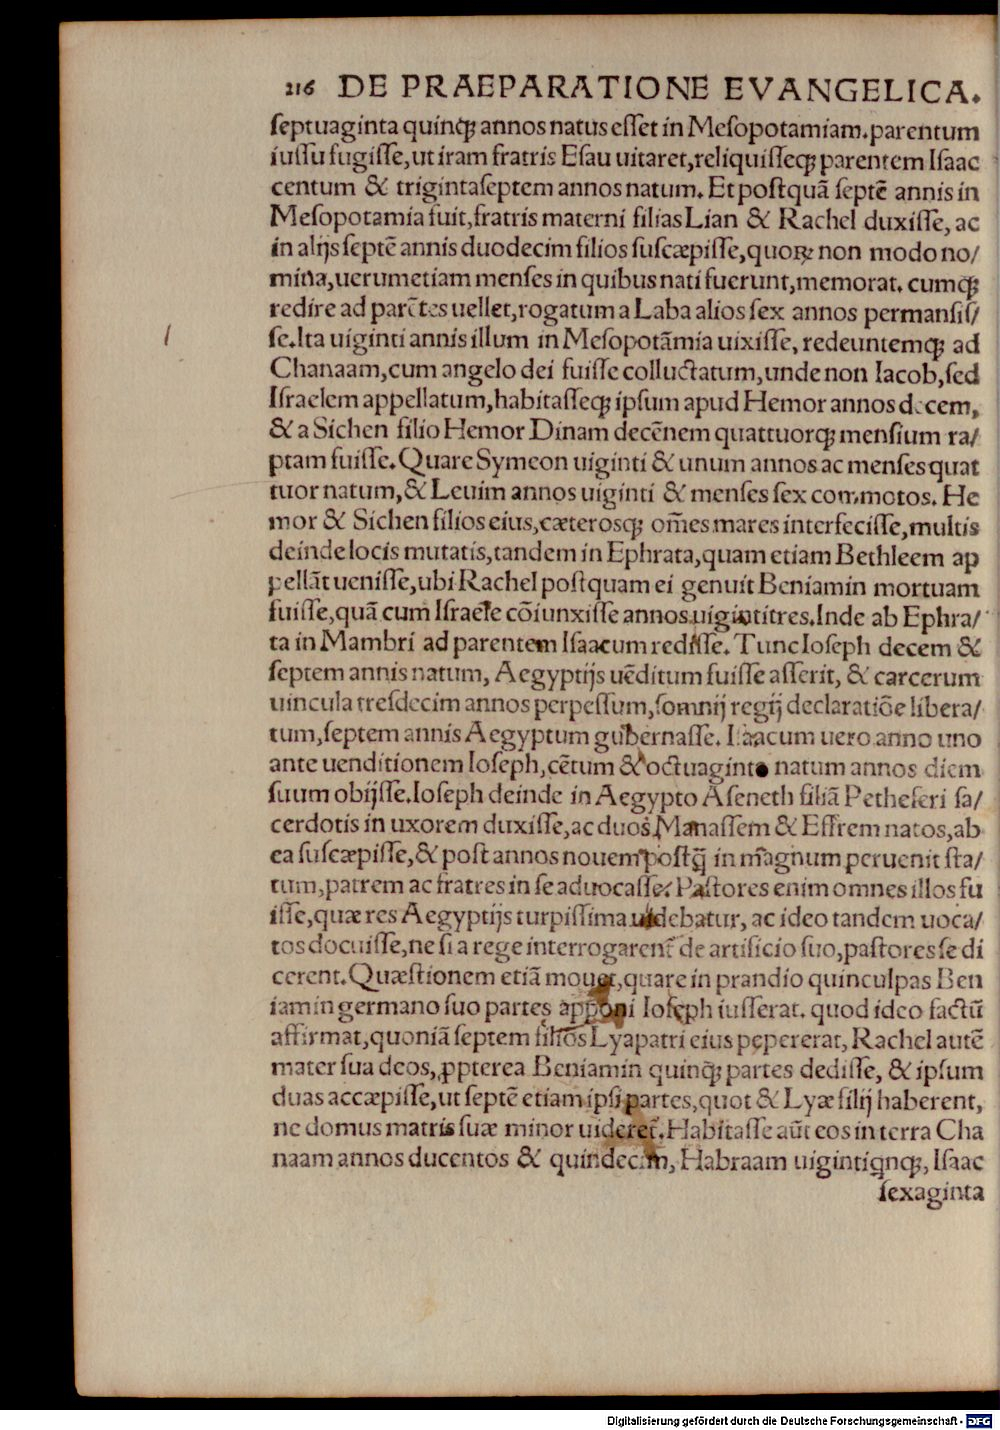 216 DE PRAEPARATIONE EVANGELICA.
ſeptuaginta quinq; annos natus eſſet in Meſopotamiam. parentum
iuſſu fugiſſe, ut iram fratris Eſau uitaret, reliquiſſeq; parentem Iſaac
centum & trigintaſeptem annos natum. Et poſtquã ſeptẽ annis in
Meſopotamia fuit, fratris materni filias Lian & Rachel duxiſſe, ac
in alijs ſeptẽ annis duodecim filios ſuſcæpiſſe, quoꝝ non modo no/
mina, uerumetiam menſes in quibus nati fuerunt, memorat. cumq;
redire ad parẽtes uellet, rogatum a Laba alios ſex annos permanſiſ/
ſe. Ita uiginti annis illum in Meſopotãmia uixiſſe, redeuntemq; ad
Chanaam, cum angelo dei fuiſſe colluctatum, unde non Iacob, ſed
Iſraelem appellatum, habitaſſeq; ipſum apud Hemor annos decem,
& a Sichen filio Hemor Dinam decẽnem quattuorq; menſium ra/
ptam fuiſſe. Quare Symeon uiginti & unum annos ac menſes quat
tuor natum, & Leuim annos uiginti & menſes ſex commotos. He
mor & Sichen filios eius, cæterosq; om̃es mares interfeciſſe, multis
deinde locis mutatis, tandem in Ephrata, quam etiam Bethleem ap
pellãt ueniſſe, ubi Rachel poſtquam ei genuit Beniamin mortuam
fuiſſe, quã cum Iſraele cõiunxiſſe annos uigintitres. Inde ab Ephra/
ta in Mambri ad parentem Iſaacum rediſſe. Tunc Ioſeph decem &
ſeptem annis natum, Aegyptijs uẽditum fuiſſe aſſerit, & carcerum
uincula treſdecim annos perpeſſum, ſomnij regij declaratiõe libera/
tum, ſeptem annis Aegyptum gubernaſſe. Iſaacum uero anno uno
ante uenditionem Ioſeph, cẽtum & octuaginta natum annos diem
ſuum obijſſe. Ioſeph deinde in Aegypto Aſeneth filiã Petheferi ſa/
cerdotis in uxorem duxiſſe, ac duos Manaſſem & Effrem natos, ab
ea ſuſcæpiſſe, & poſt annos nouem poſtq̃ in magnum peruenit ſta/
tum, patrem ac fratres in ſe aduocaſſe. Paſtores enim omnes illos fu
iſſe, quæ res Aegyptijs turpiſſima uidebatur, ac ideo tandem uoca/
tos docuiſſe, ne ſi a rege interrogarent̃ de artificio ſuo, paſtores ſe di
cerent. Quæſtionem etiã mouet, quare in prandio quinculpas Ben
iamin germano ſuo partes apponi Ioſeph iuſſerat. quod ideo factũ
affirmat, quoniã ſeptem filios Lya patri eius pepererat, Rachel autẽ
mater ſua deos, ꝓpterea Beniamin quinq; partes dediſſe, & ipſum
duas accæpiſſe, ut ſeptẽ etiam ipſi partes, quot & Lyæ filij haberent,
ne domus matris ſuæ minor uideret̃. Habitaſſe aũt eos in terra Cha
naam annos ducentos & quindecim, Habraam uigintiqnq;, Iſaac
ſexaginta
Digitalisierung gefördert durch die Deutsche Forschungsgemeinschaft - DFG